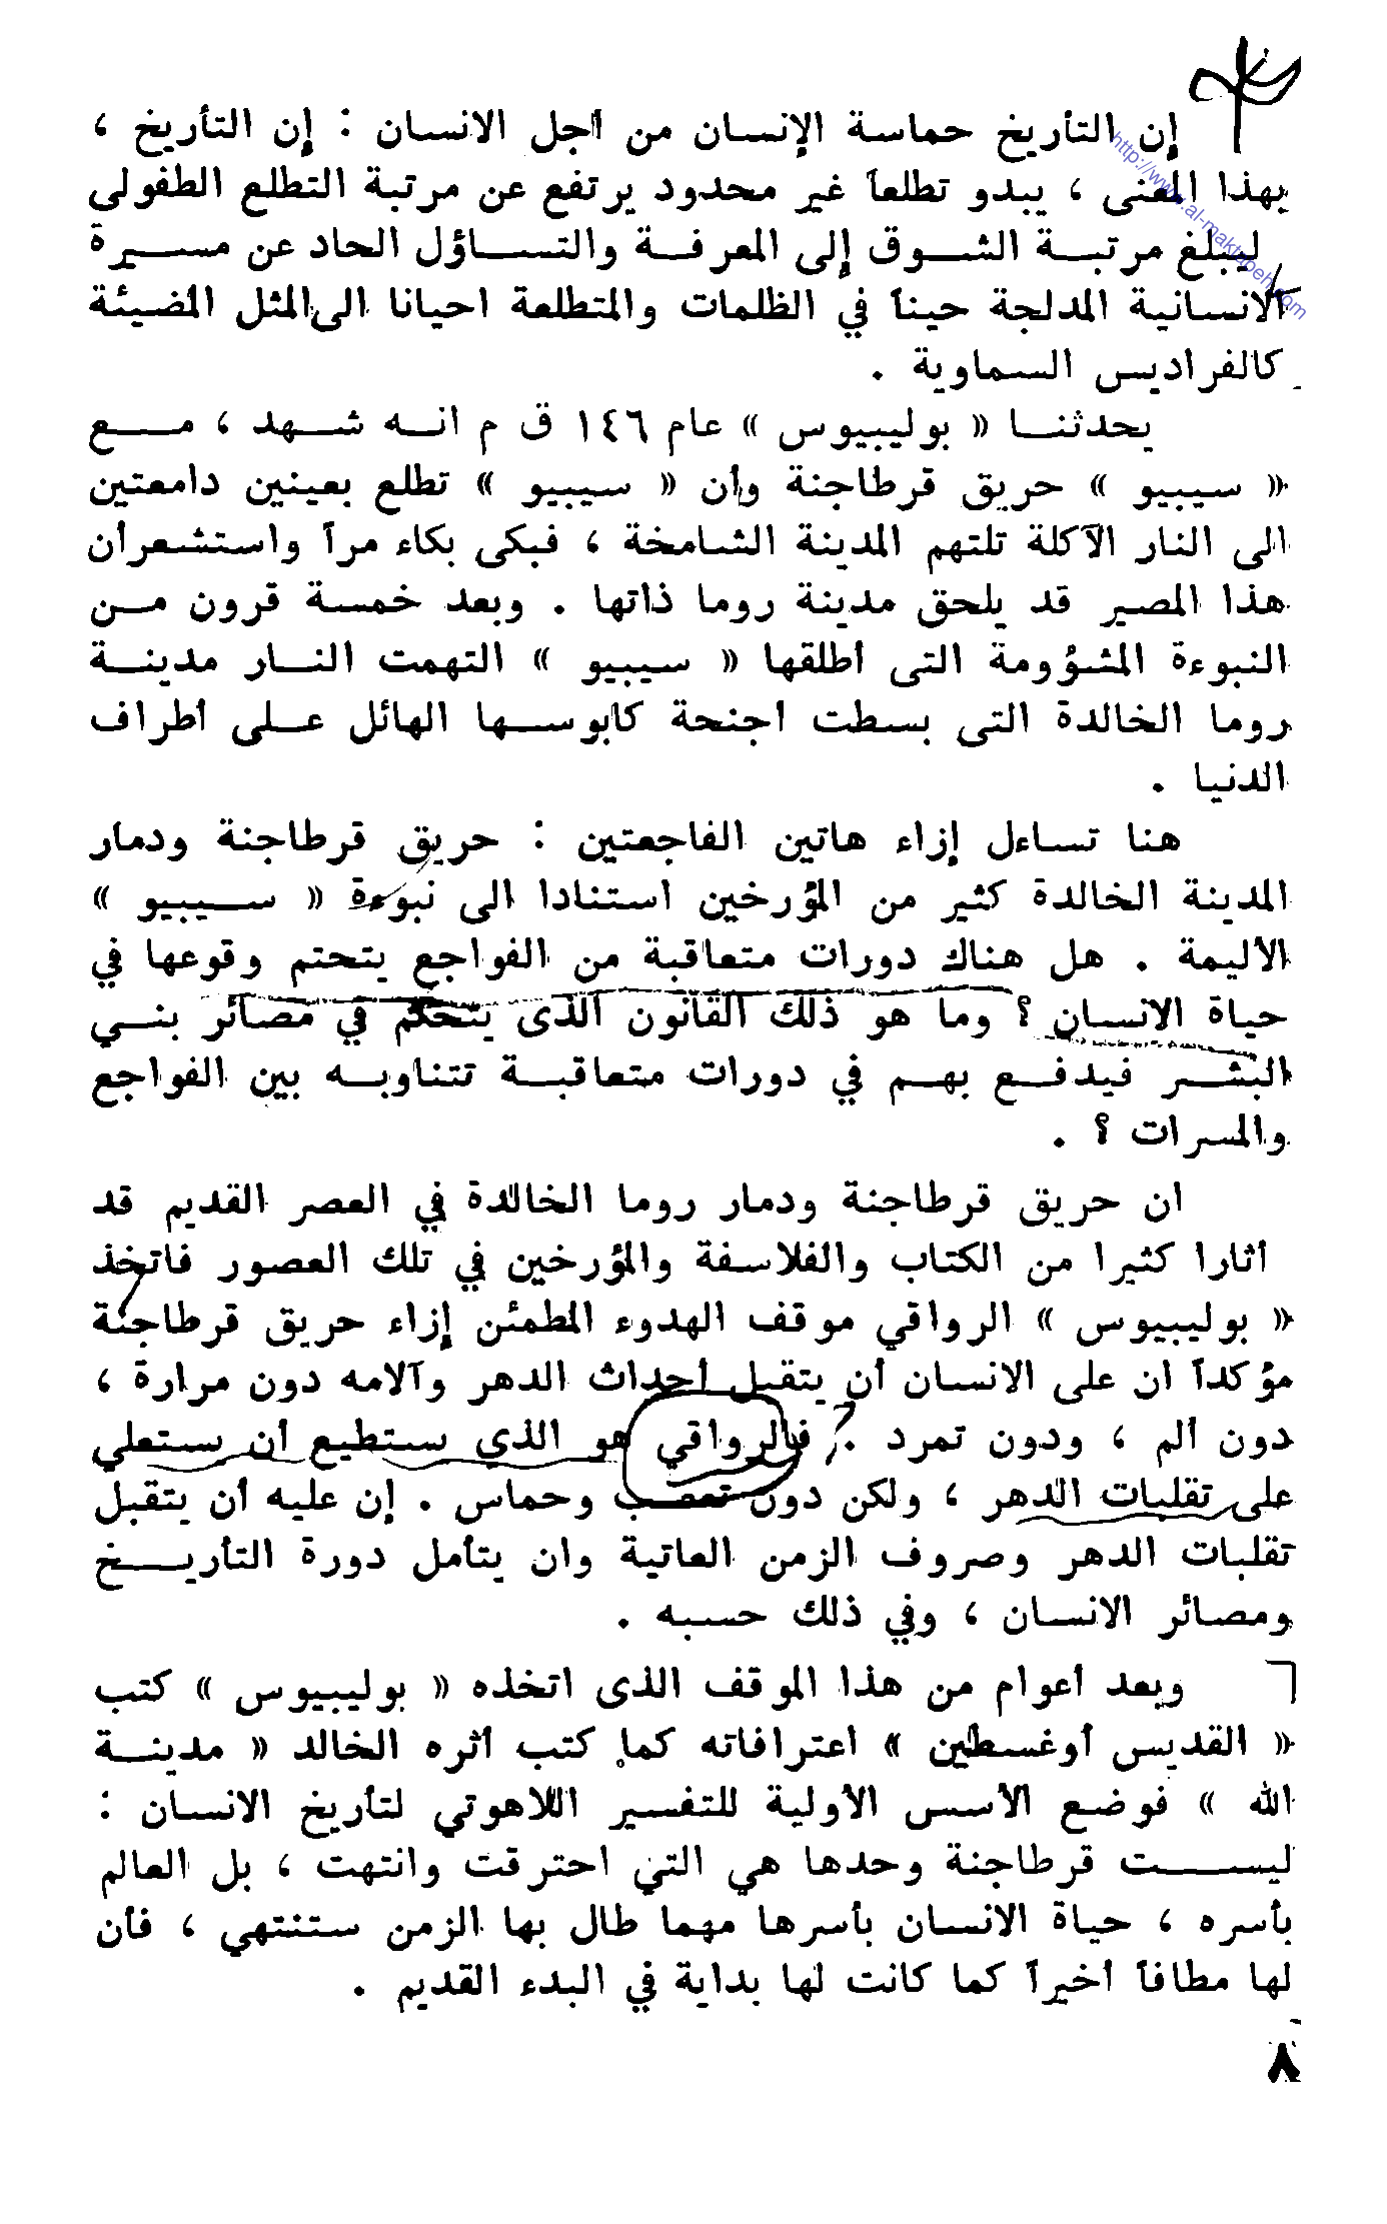 إن التأريخ حماسة الإنسان من أجل الانسان : إن التأريخ ،
بهذا المعنى ، يبدو تطلعاً غير محدود يرتفع عن مرتبة التطلع الطفولى
ليبلغ مرتبة الشوق إلى المعرفة والتساؤل الحاد عن مسيرة
الانسانية المدلجة حيناً في الظلمات والمتطلعة احيانا الى المثل المضيئة
كالفراديس السماوية .
يحدثنا « بوليبيوس » عام ١٤٦ ق م انه شهد ، مع
« سيبيو » حريق قرطاجنة وأن « سيبيو » تطلع بعينين دامعتين
الى النار الآكلة تلتهم المدينة الشامخة ، فبكى بكاء مراً واستشعر أن
هذا المصير قد يلحق مدينة روما ذاتها . وبعد خمسة قرون من
النبوءة المشؤومة التى أطلقها « سيبيو » التهمت النار مدينة
روما الخالدة التى بسطت اجنحة كابوسها الهائل على أطراف
الدنيا .
هنا تساءل إزاء هاتين الفاجعتين : حريق قرطاجنة ودمار
المدينة الخالدة كثير من المؤرخين استنادا الى نبوءة « سيبيو »
الأليمة . هل هناك دورات متعاقبة من الفواجع يتحتم وقوعها في
حياة الانسان ؟ وما هو ذلك القانون الذى يتحكم في مصائر بني
البشر فيدفع بهم في دورات متعاقبة تتناوبه بين الفواجع
والمسرات ؟ .
ان حريق قرطاجنة ودمار روما الخالدة في العصر القديم قد
أثارا كثيرا من الكتاب والفلاسفة والمؤرخين في تلك العصور فاتخذ
« بوليبيوس » الرواقي موقف الهدوء المطمئن إزاء حريق قرطاجنة
مؤكداً ان على الانسان أن يتقبل أحداث الدهر وآلامه دون مرارة ،
دون ألم ، ودون تمرد . فالرواقي هو الذي ستطيع أن ستعلي
على تقلبات الدهر ، ولكن دون تعصب وحماس . إن عليه أن يتقبل
تقلبات الدهر وصروف الزمن العاتية وان يتأمل دورة التأريخ
ومصائر الانسان ، وفي ذلك حسبه .
وبعد أعوام من هذا الموقف الذى اتخذه « بوليبيوس » كتب
« القديس أوغسطين » اعترافاته كما كتب أثره الخالد « مدينة
الله » فوضع الأسس الأولية للتفسير اللاهوتي لتأريخ الانسان :
ليست قرطاجنة وحدها هي التي احترقت وانتهت ، بل العالم
بأسره ، حياة الانسان بأسرها مهما طال بها الزمن ستنتهي ، فأن
لها مطافاً أخيراً كما كانت لها بداية في البدء القديم .
٨
http://www.al-maktabeh.com